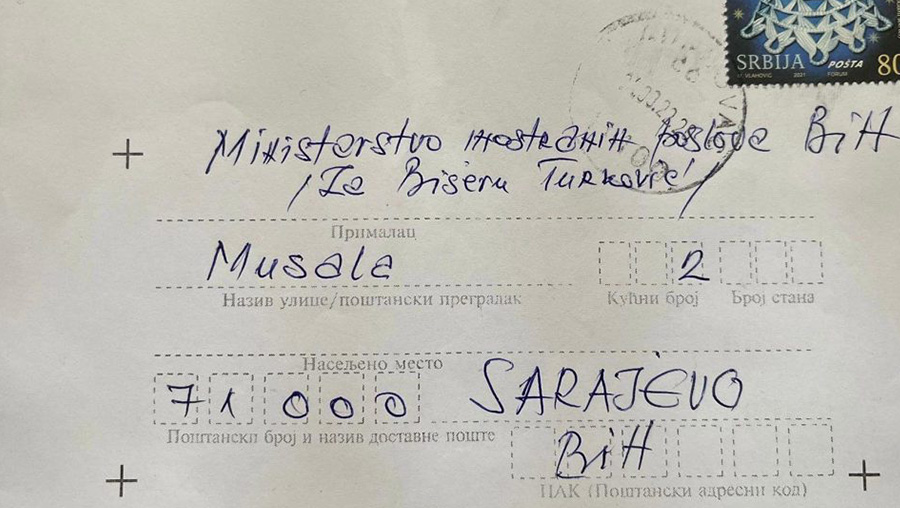 SRBIJA POŠTA 80
VLAHOVIĆ 2021 FORUM
Ministarstvo inostranih poslova BiH
/Za Biseru Turković/
Прималац
Musala 2
Назив улице/поштански преградак Кућни број Број стана
Насељено место
71000 SARAJEVO
Поштански број и назив доставне поште
BiH
ПАК (Поштански адресни код)